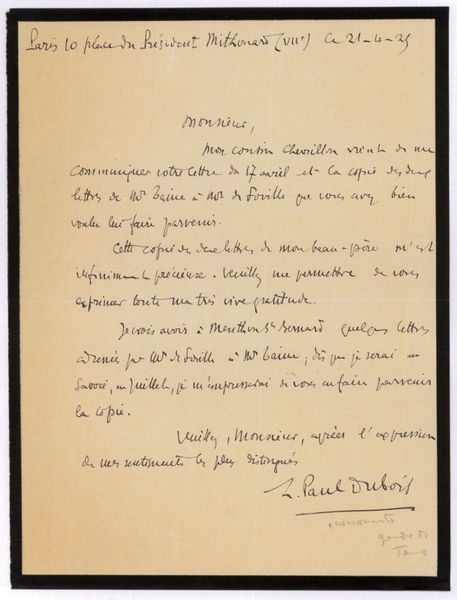 Paris 10 place du Président Mithouard (VIIe) Ce 21-4-25
Monsieur,
Mon cousin Chevrillon vient de me
communiquer votre lettre du 17 avril et la copie des deux
lettres de Mr Taine à Mr de Soville que vous avez bien
voulu lui faire parvenir.
Cette copie des deux lettres de mon beau-père m'est
infiniment précieuse. Veuillez me permettre de vous
exprimer toute ma très vive gratitude.
Je crois avoir à Menthon St Bernard quelques lettres
adressées par Mr de Soville à Mr Taine; dès que je serai en
Savoie, en Juillet, je m'empresserai de vous en faire parvenir
la copie.
Veuillez, Monsieur, agréer l'expression
de mes sentiments les plus distingués
L. Paul Dubois
économiste
gendre de
Taine